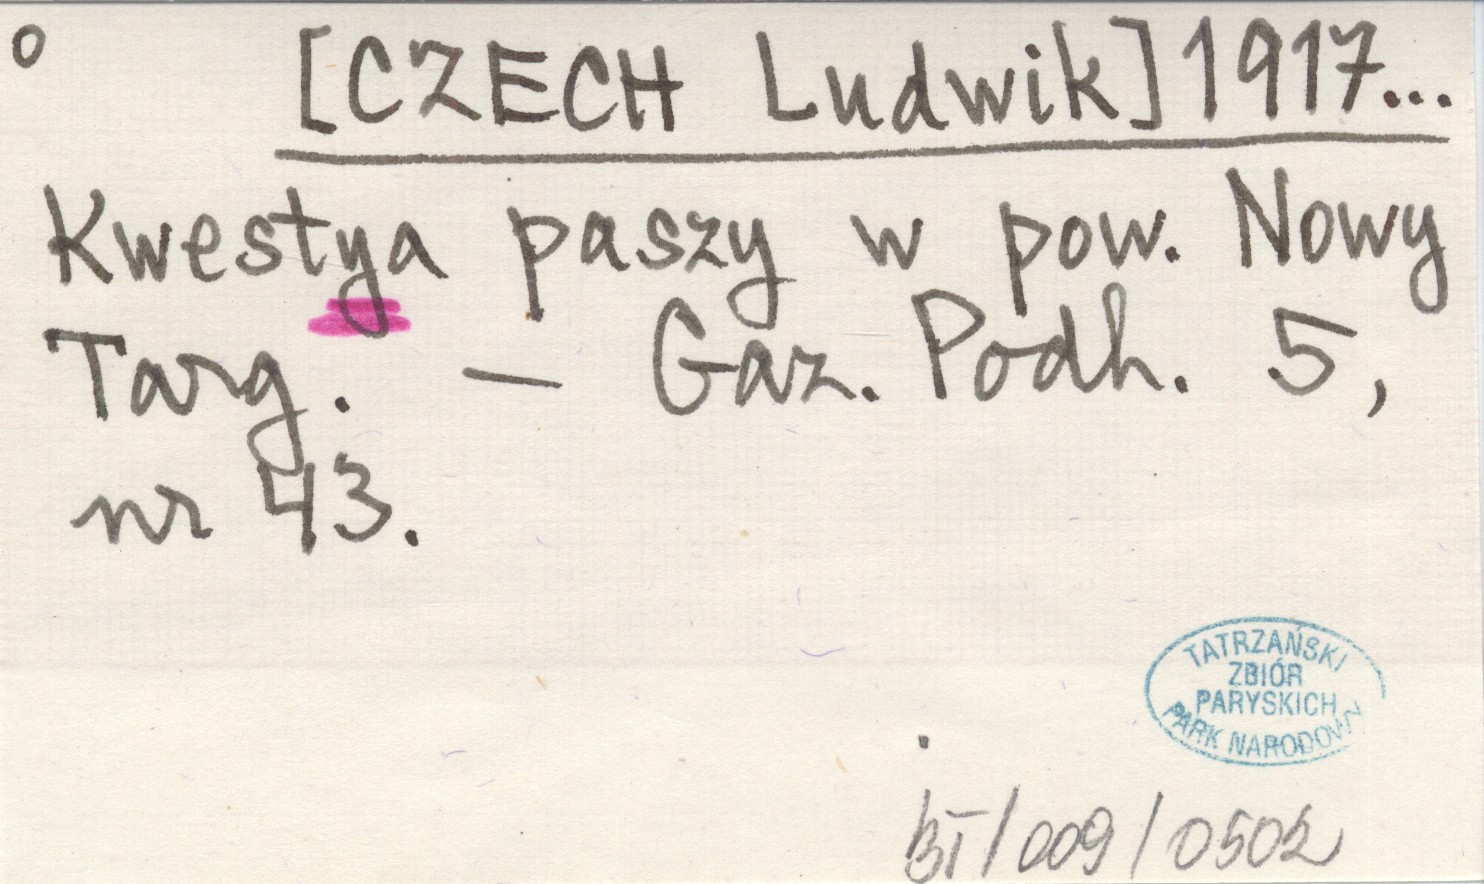 o [CZECH Ludwik] 1917...
Kwestya paszy w pow. Nowy
Targ. — Gaz. Podh. 5,
nr 43.
TATRZAŃSKI
ZBIÓR
PARYSKICH
PARK NARODOWY
BI/009/0502